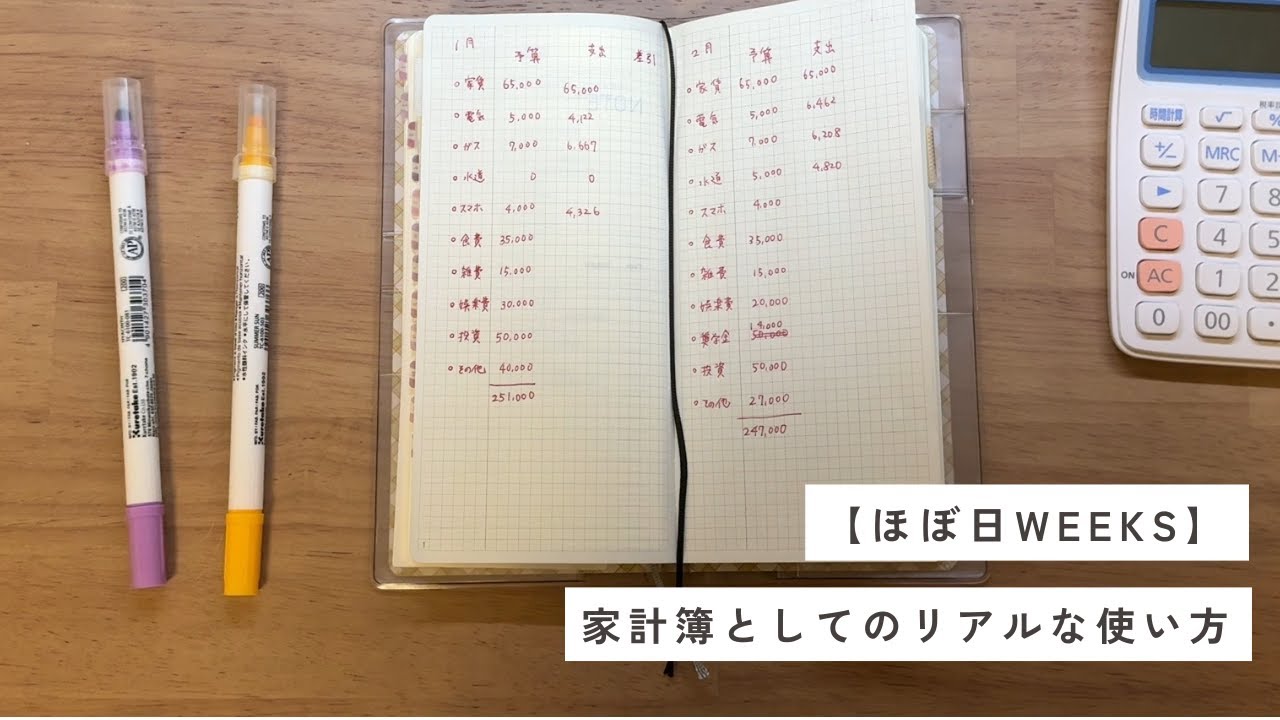 1月 予算 支出 差引
家賃 65,000 65,000
電気 5,000 4,122
ガス 7,000 6,667
水道 0 0
スマホ 4,000 4,326
食費 35,000
雑費 15,000
娯楽費 30,000
投資 50,000
その他 40,000
251,000
2月 予算 支出
家賃 65,000 65,000
電気 5,000 6,462
ガス 7,000 6,208
水道 5,000 4,820
スマホ 4,000
食費 35,000
雑費 15,000
娯楽費 20,000
奨学金 50,000 19,000
投資 50,000
その他 27,000
247,000
時間計算 √ %
+/- MRC M
7 8
C 4 5
ON AC 1 2
0 00 •
Kuretake Est.1902
Kuretake Est.1902
SUMMER SUN
【ほぼ日WEEKS】
家計簿としてのリアルな使い方